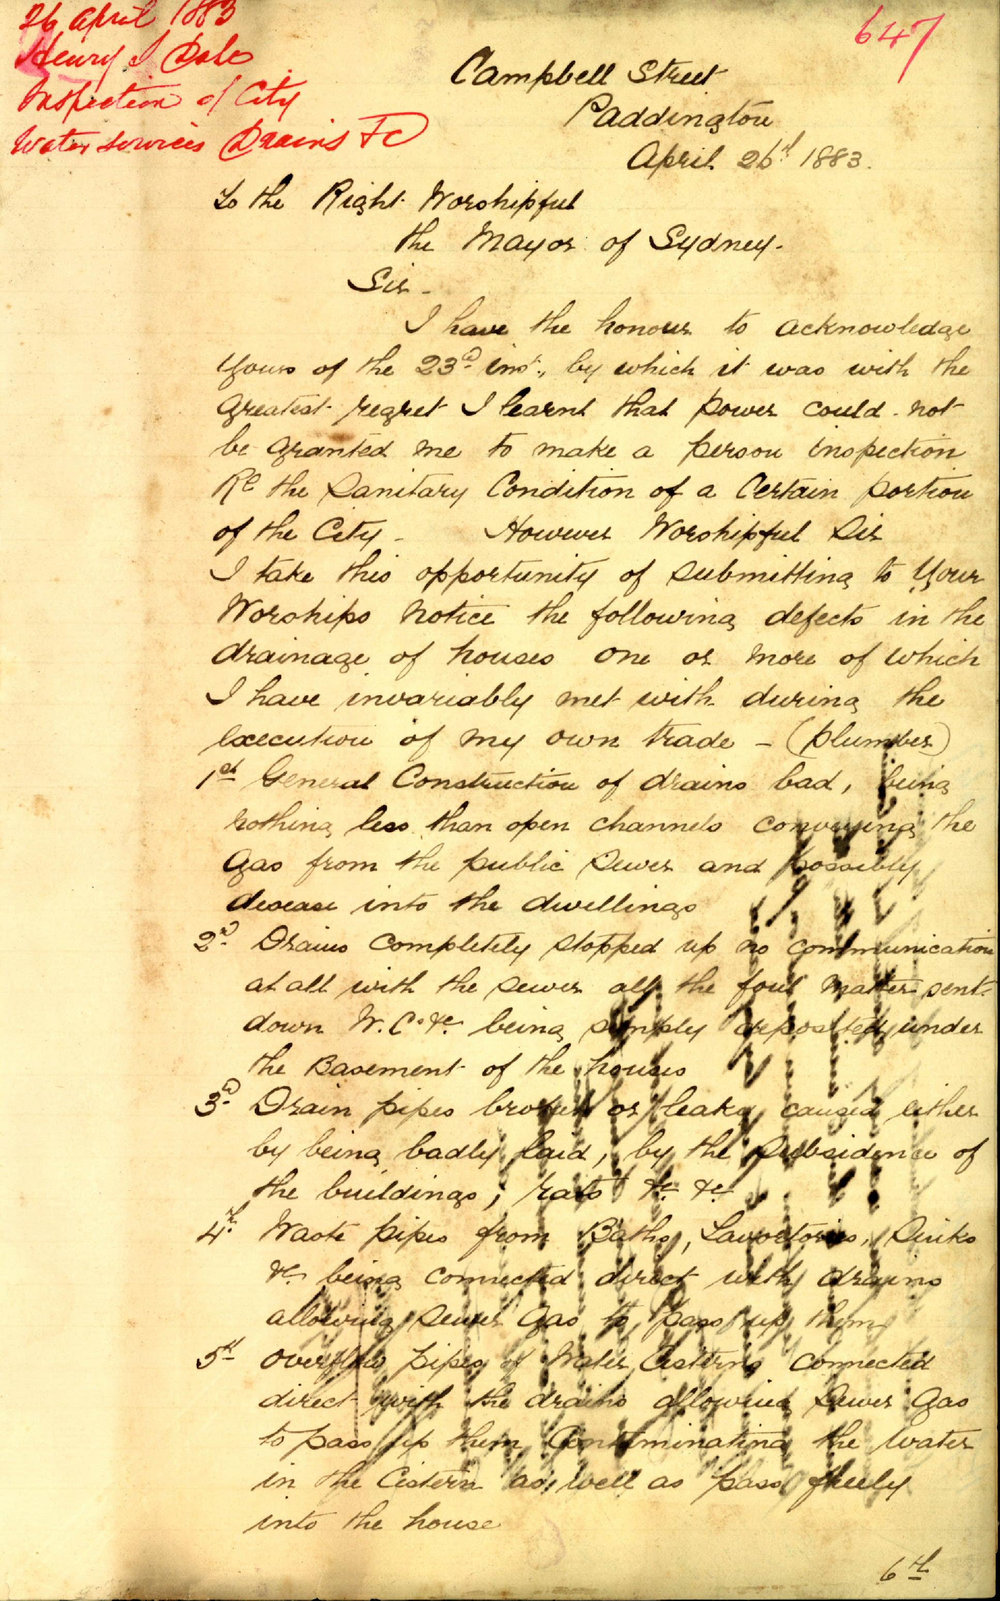 26 April 1883
Henry S Dale
Inspection of City
Water services Drains &c
647
Campbell Street
Paddington
April 26th 1883.
To the Right Worshipful
the Mayor of Sydney.
Sir -
I have the honour to acknowledge
Yours of the 23rd inst., by which it was with the
greatest regret I learnt that power could not
be granted me to make a person inspection
Re the Sanitary Condition of a Certain portion
of the City - However Worshipful Sir
I take this opportunity of submitting to Your
Worships notice the following defects in the
drainage of houses one or more of which
I have invariably met with during the
execution of my own trade - (plumber)
1st General Construction of drains bad, being
nothing less than open channels conveying the
Gas from the public Sewer and possibly
desease into the dwellings
2d Drains completely stopped up no communication
at all with the sewer all the foul matter sent
down W.C. &c being simply deposited under
the Basement of the houses
3d Drain pipes broken or leaky caused either
by being badly laid, by the subsidence of
the buildings, rats &c &c
4th Waste pipes from Baths, Lavoctories, Sinks
&c being connected direct with drains
allowing sewer gas to pass up them
5th Overflow pipes of Water Cisterns connected
direct with the drains allowing Sewer Gas
to pass up them Contaminating the water
in the Cistern as well as pass freely
into the house
6th